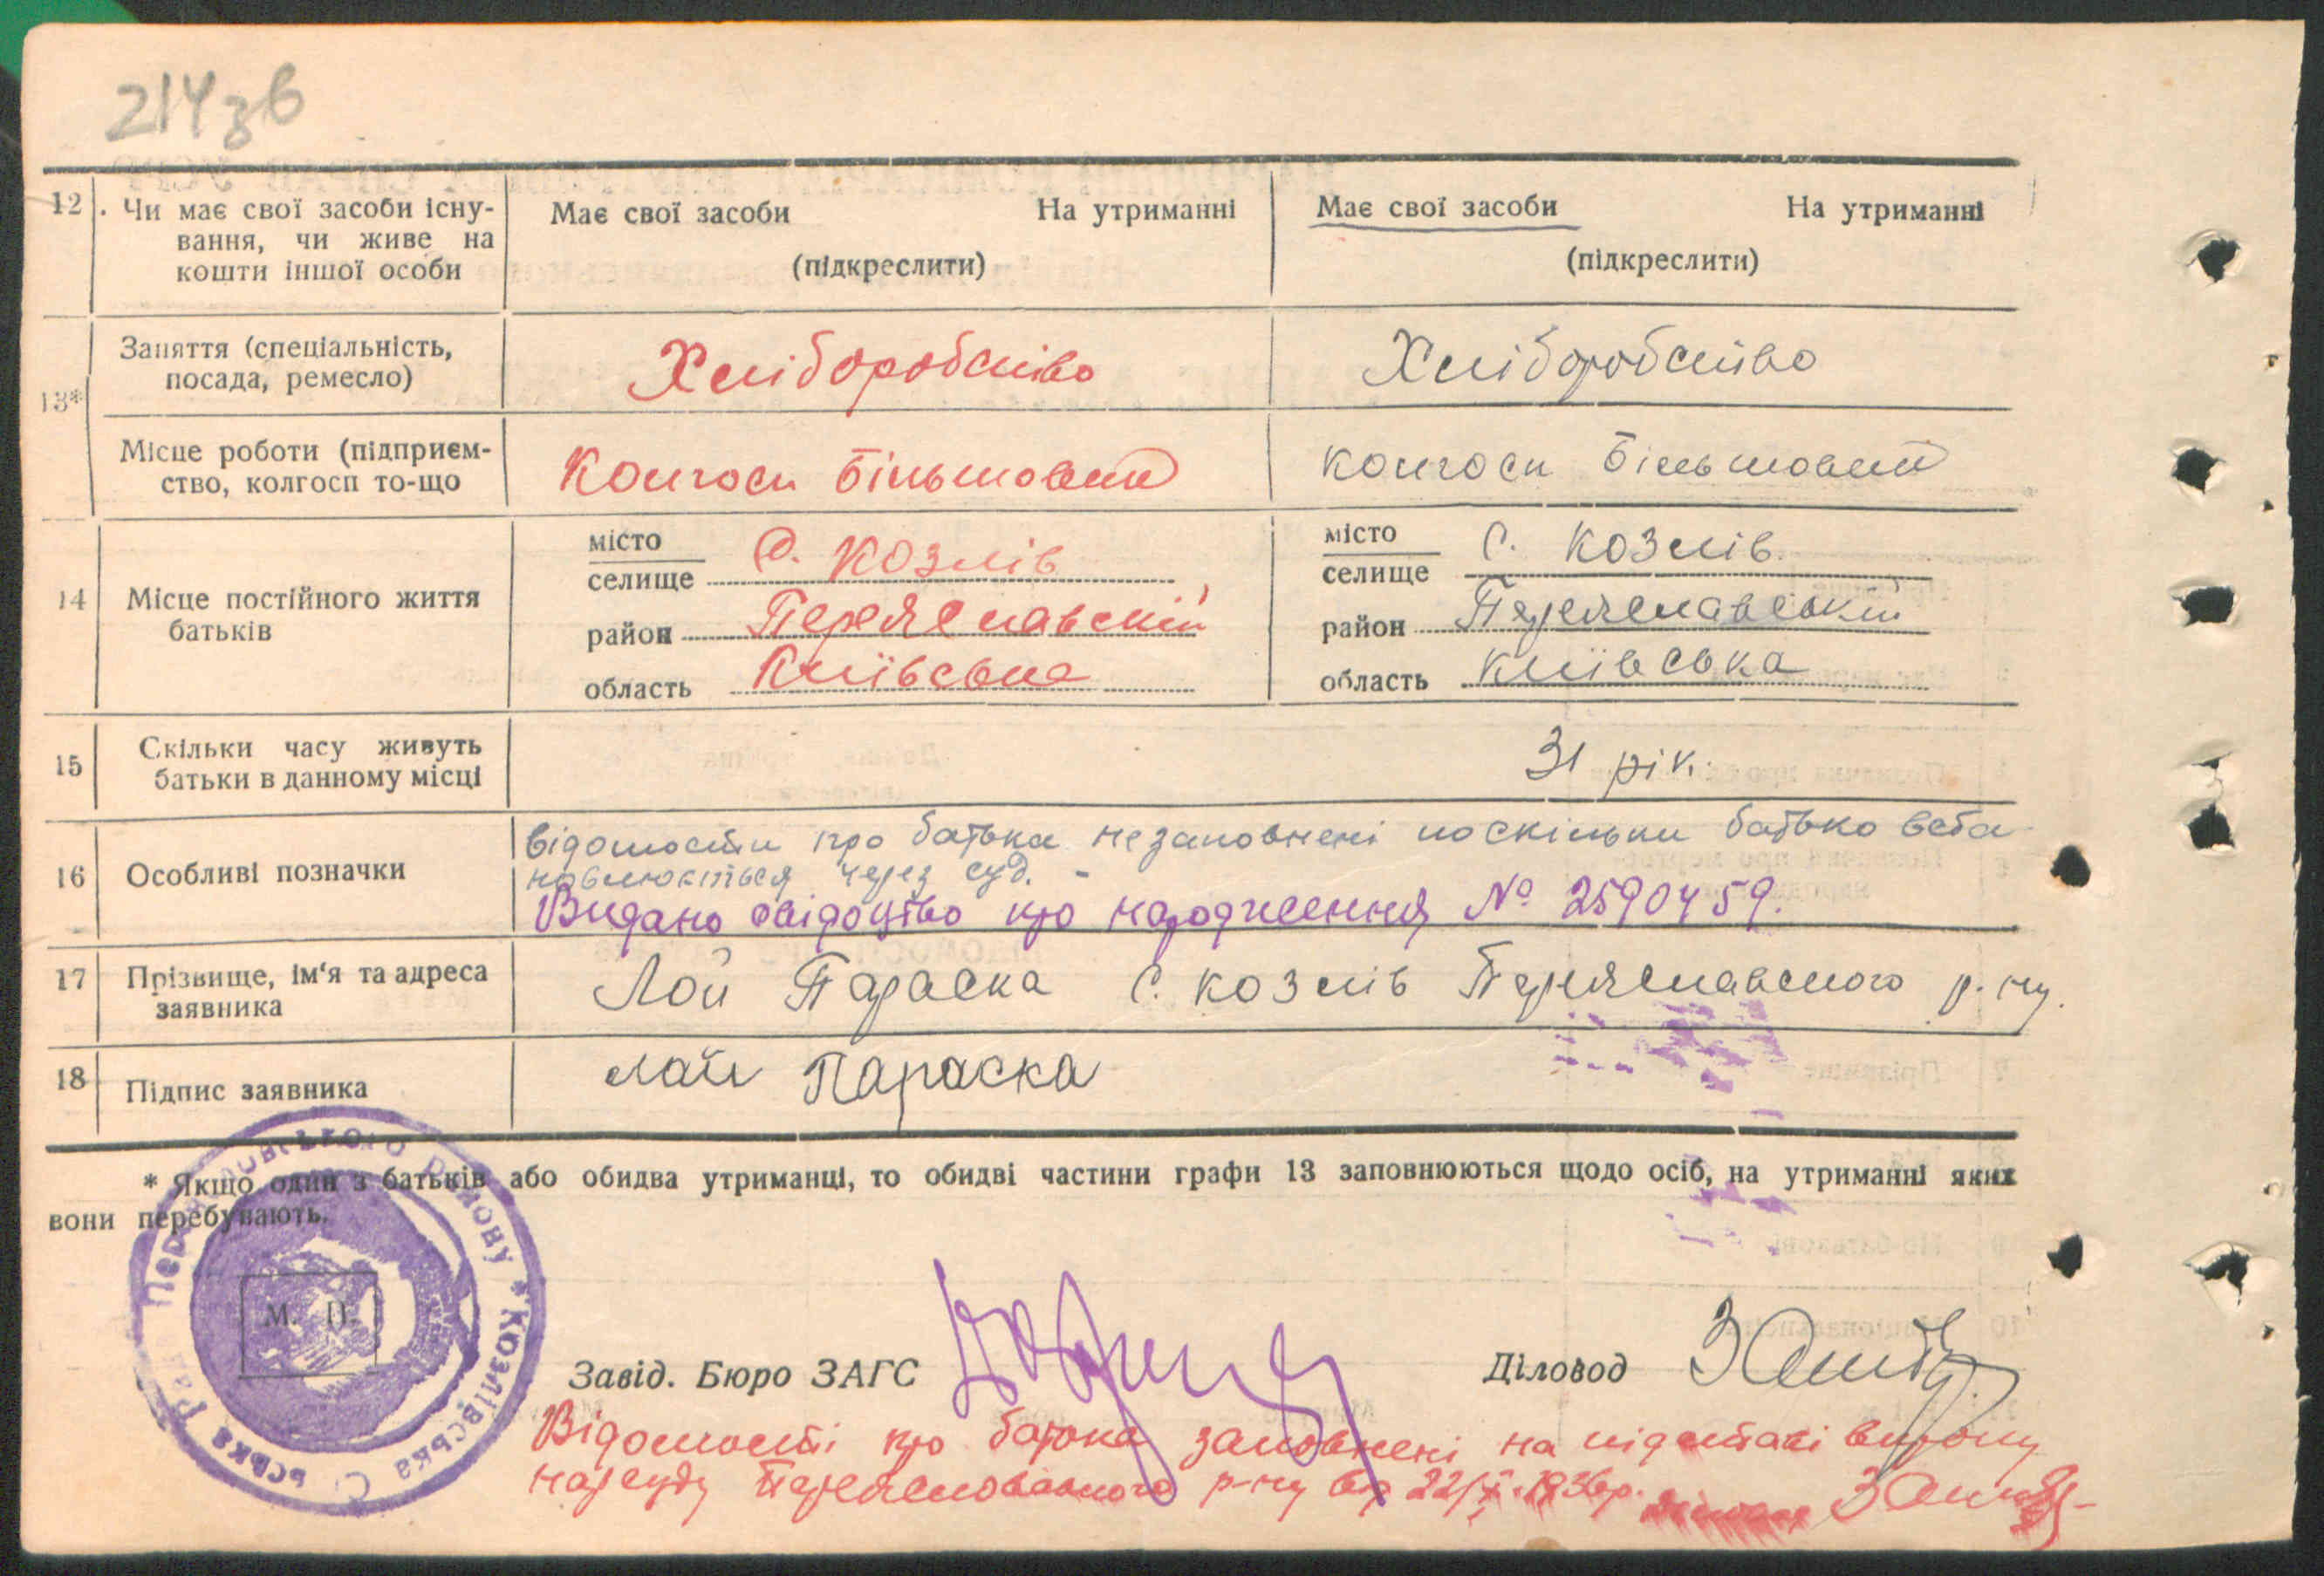 21436
12. Чи має свої засоби існу-
вання, чи живе на
кошти іншої особи
Має свої засоби На утриманні
(підкреслити)
Має свої засоби На утриманні
(підкреслити)
13*
Заняття (спеціальність,
посада, ремесло)
Хліборобство
Хліборобство
Місце роботи (підприєм-
ство, колгосп то-що
Колгосп Більшовик
колгосп Більшовик
14 Місце постійного життя
батьків
місто
селище С. Козлів
район Переяславський
область Київська
місто
селище С. Козлів.
район Переяславський
область Київська
15 Скільки часу живуть
батьки в данному місці
31 рік.
16 Особливі позначки
відомости про батька незаповнені поскільки батько вста
новлюється через суд. -
Видано свідоцтво про народження № 2590459.
17 Прізвище, ім‘я та адреса
заявника
Лой Параска С. Козлів Переяславского р-ну.
18 Підпис заявника
Лой Параска
* Якщо один з батьків або обидва утриманці, то обидві частини графи 13 заповнюються щодо осіб, на утриманні яких
вони перебувають.
М. П.
Козлівська Сільська Рада Переяславського району *
Завід. Бюро ЗАГС
Діловод
Відомості про батька заповнені на підставі вироку
нарсуду Переяславського р-ну від 22/X 1936р.